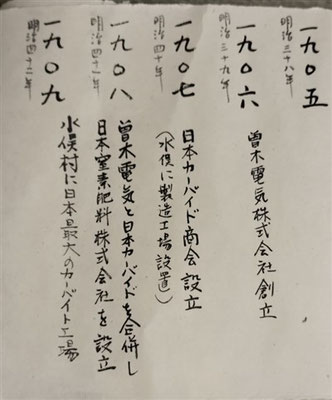 一九〇五
明治三十八年
一九〇六
明治三十九年
曽木電気株式会社創立
一九〇七
明治四十年
日本カーバイド商会設立
（水俣に製造工場設置）
一九〇八
明治四十一年
曽木電気と日本カーバイドを合併し
日本窒素肥料株式会社を設立
一九〇九
明治四十二年
水俣村に日本最大のカーバイト工場